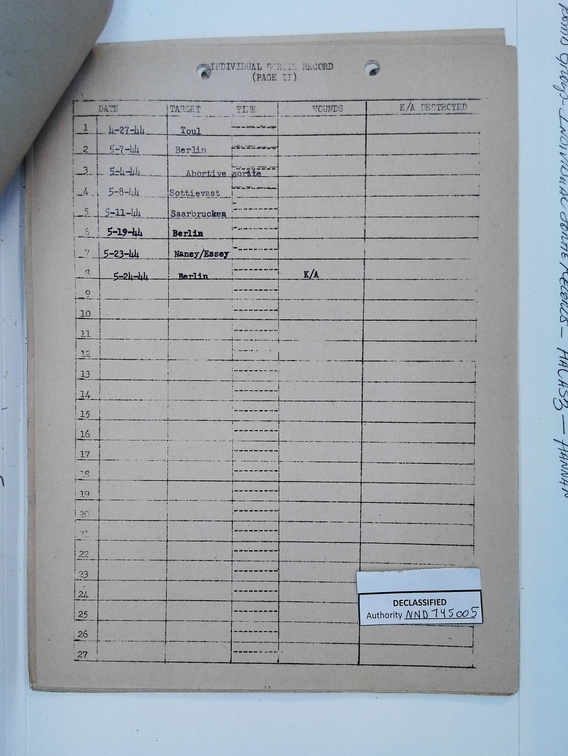 INDIVIDUAL SORTIE RECORD
(PAGE II)
DATE TARGET TIME WOUNDS E/A DESTROYED
1 4-27-44 Toul
2 5-7-44 Berlin
3 5-4-44 Abortive sortie
4 5-8-44 Sottievast
5 5-11-44 Saarbrucken
6 5-19-44 Berlin
7 5-23-44 Nancy/Essey
8 5-24-44 Berlin K/A
9
10
11
12
13
14
15
16
17
18
19
20
21
22
23
24
25
26
27
DECLASSIFIED
Authority NND 745005
INDIVIDUAL SORTIE RECORDS - HALASZ - HANNAN